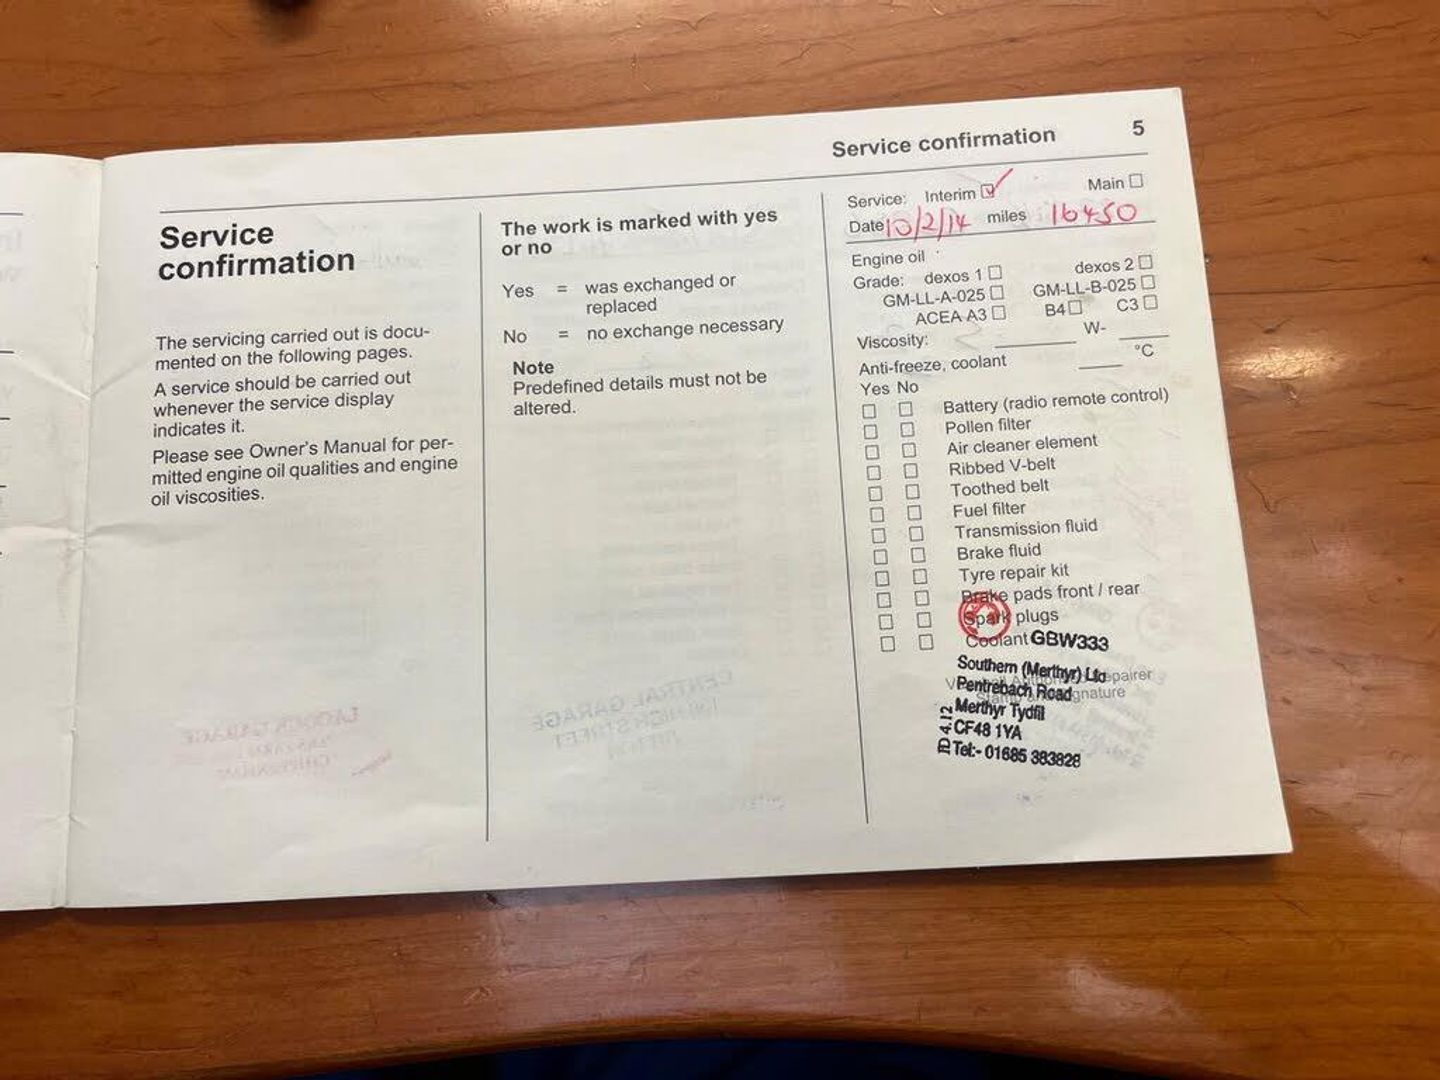 Service confirmation 5
Service
confirmation
The servicing carried out is docu-
mented on the following pages.
A service should be carried out
whenever the service display
indicates it.
Please see Owner's Manual for per-
mitted engine oil qualities and engine
oil viscosities.
The work is marked with yes
or no
Yes = was exchanged or
replaced
No = no exchange necessary
Note
Predefined details must not be
altered.
Service: Interim Main
Date 10/2/14 miles 16450
Engine oil
Grade: dexos 1 dexos 2
GM-LL-A-025 GM-LL-B-025
ACEA A3 B4 C3
Viscosity: W-
Anti-freeze, coolant °C
Yes No
Battery (radio remote control)
Pollen filter
Air cleaner element
Ribbed V-belt
Toothed belt
Fuel filter
Transmission fluid
Brake fluid
Tyre repair kit
Brake pads front / rear
Spark plugs
Coolant GBW333
Southern (Merthyr) Ltd
Pentrebach Road
Merthyr Tydfil
CF48 1YA
Tel:- 01685 383828
ID 4.12
CENTRAL GARAGE
HIGH STREET